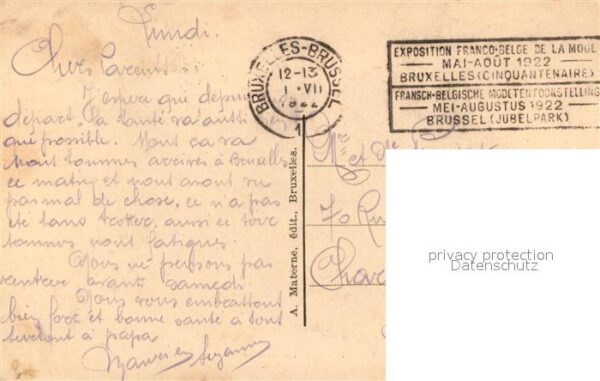 Lundi.
Chers Parents :
J'espère que depuis
départ, la santé va aussi bien
que possible. Nous ça va
Nous sommes arrivés à Bruxelles
ce matin et nous avons vu
pas mal de chose, ce n'a pas
été sans trotter, aussi ce soir
sommes nous fatigués.
Nous ne pensons pas
rentrer avant samedi.
Nous vous embrassons
bien fort et bonne santé à tous
surtout à papa
Suzanne
BRUXELLES-BRUSSEL
12-13
1 VII
1922
EXPOSITION FRANCO-BELGE DE LA MODE
MAI-AOÛT 1922
BRUXELLES (CINQUANTENAIRE)
FRANSCH-BELGISCHE MODETENTOONSTELLING
MEI-AUGUSTUS 1922
BRUSSEL (JUBELPARK)
A. Materne, édit., Bruxelles.
Mr et Mme
70 Rue
privacy protection
Datenschutz